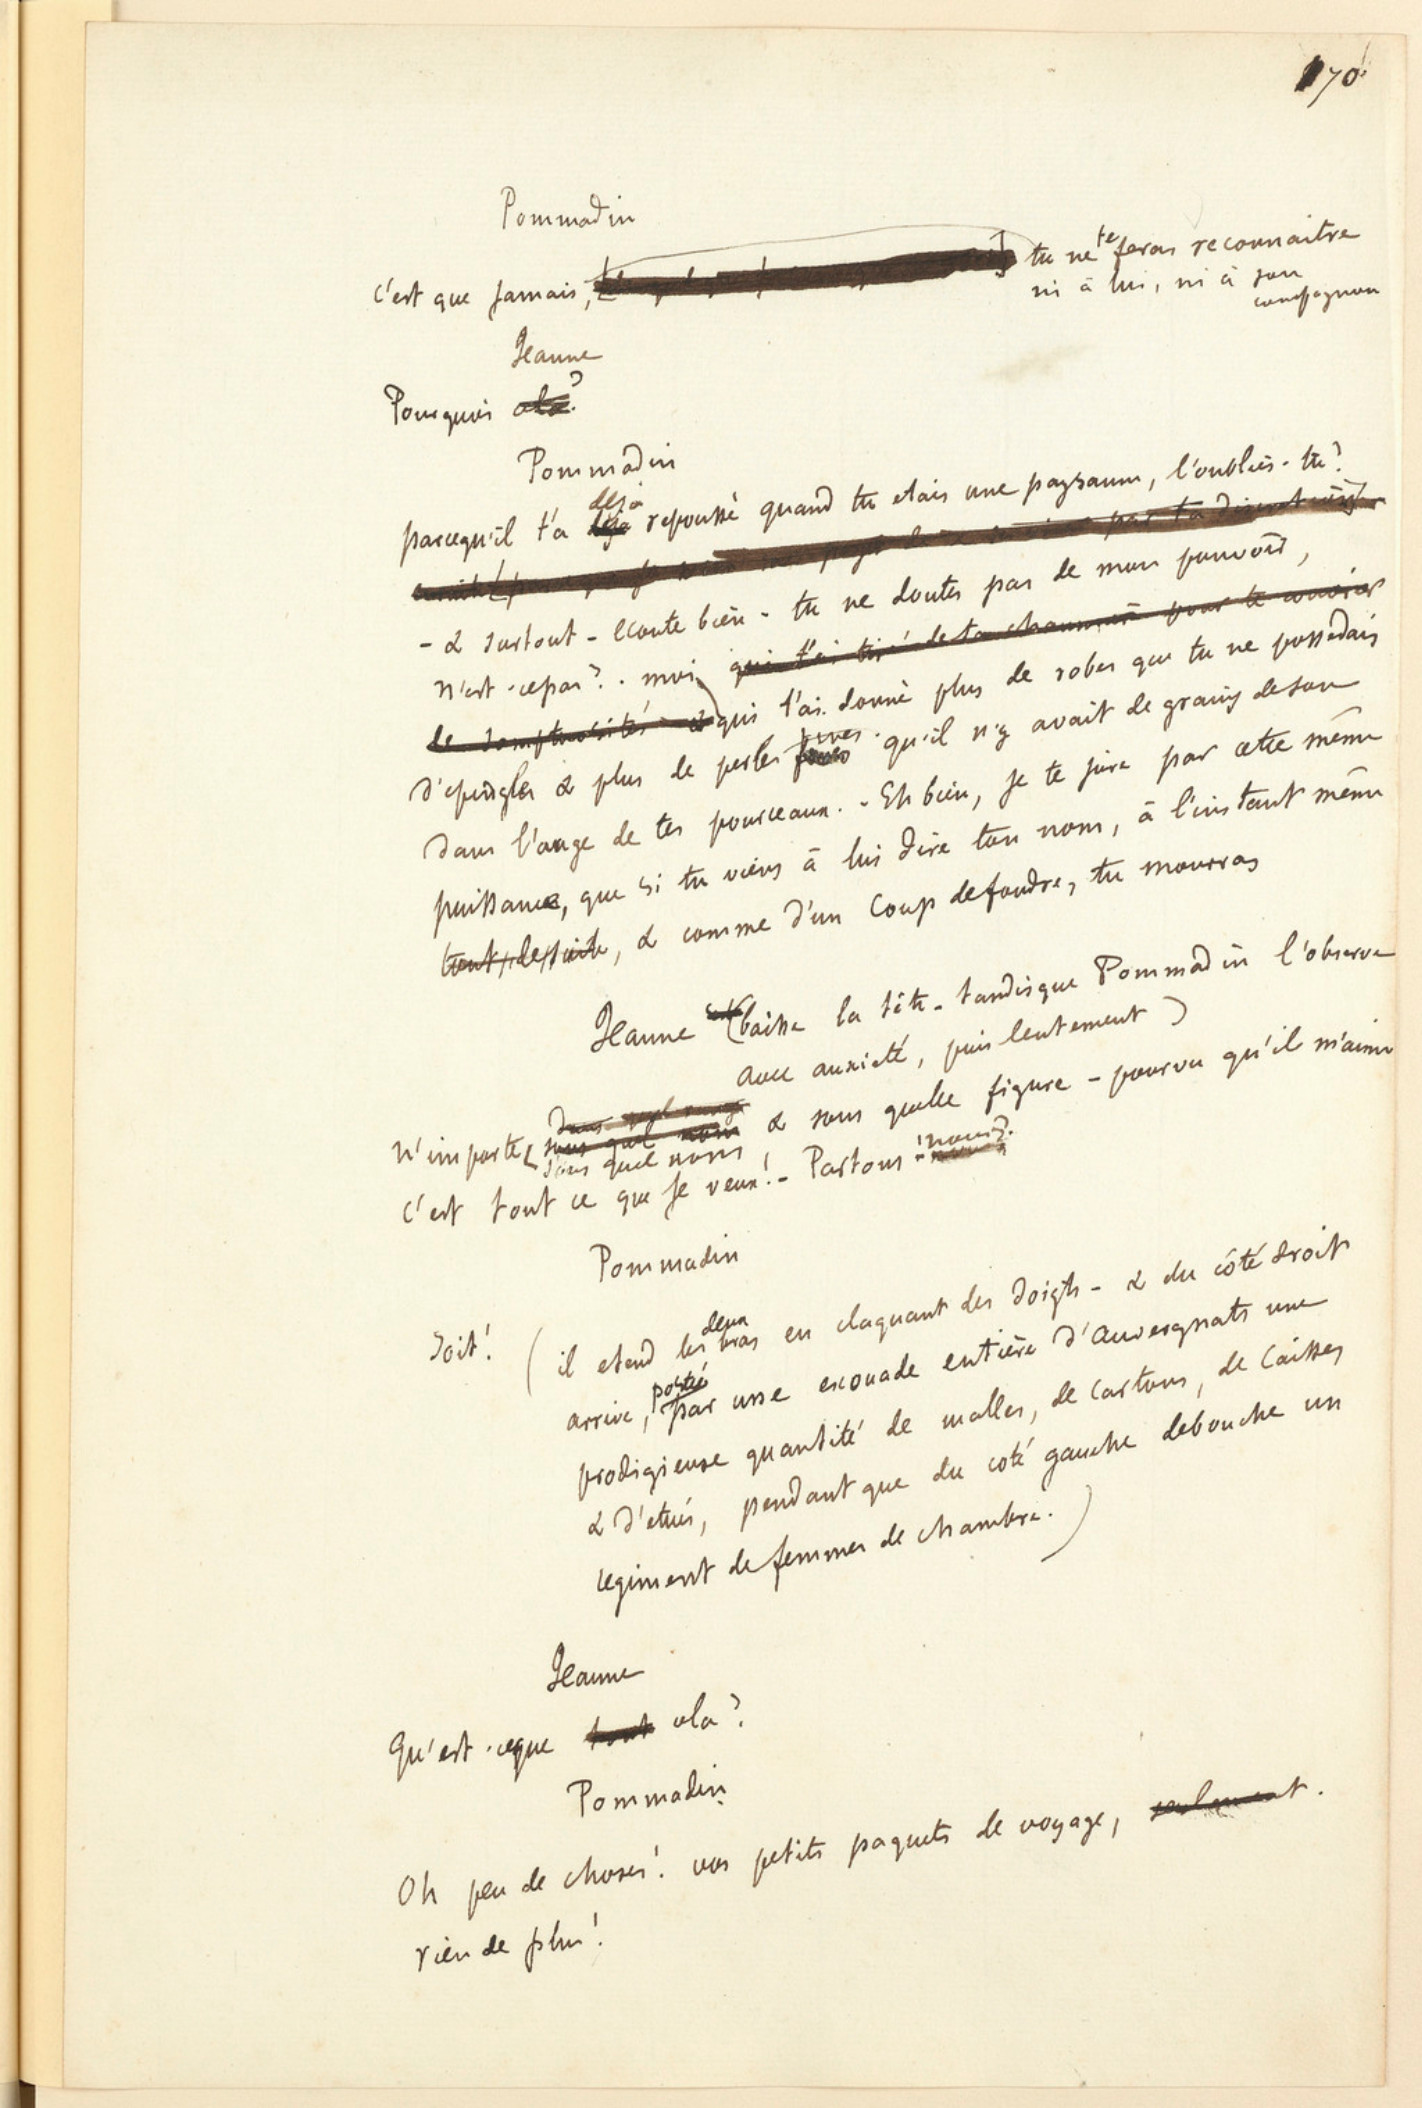 170
Pommadin
c'est que jamais, tu ne te feras reconnaitre
ni à lui, ni à son
compagnon
Jeanne
Pourquoi cela?
Pommadin
parcequ'il t'a déjà déjà repoussé quand tu etais une paysanne, l'oublies-tu?
par ta
- & surtout - ecoute bien - tu ne doutes pas de mon pouvoir,
n'est-cepas? - moi qui t'ai tiré de ta chaumière pour te couvrir
de somptuosités & qui t'ai donné plus de robes que tu ne possedais
d'epingles & plus de perles fines qu'il n'y avait de grains de son
dans l'auge de tes pourceaux. - Eh bien, je te jure par cette même
puissance, que si tu viens à lui dire ton nom, à l'instant même
tout de suite, & comme d'un coup de foudre, tu mourras
Jeanne (baisse la tête - tandisque Pommadin l'observe
avec anxiété, puis lentement)
Dans quel
n'importe sous quel nom & sous quelle figure - pourvu qu'il m'aime
sous quel nom,
c'est tout ce que je veux! - Partons-nous?
Pommadin
Soit! (il etend les deux bras en claquant des doigts - & du côté droit
arrive, portée par une escouade entière d'Auvergnats une
prodigieuse quantité de malles, de cartons, de caisses
& d'etuis, pendant que du coté gauche debouche un
regiment de femmes de chambre.)
Jeanne
Qu'est-ceque tout cela?
Pommadin
Oh peu de choses! vos petits paquets de voyage, seulement.
rien de plus!